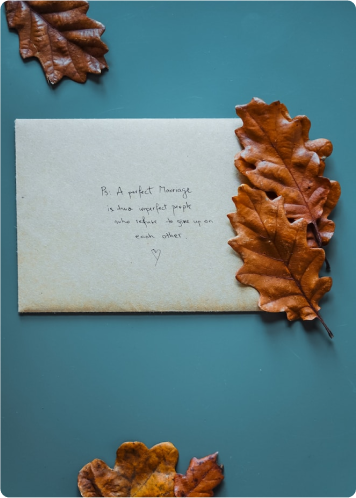 Ps: A perfect Marriage
is two imperfect people
who refuse to give up on
each other
♡